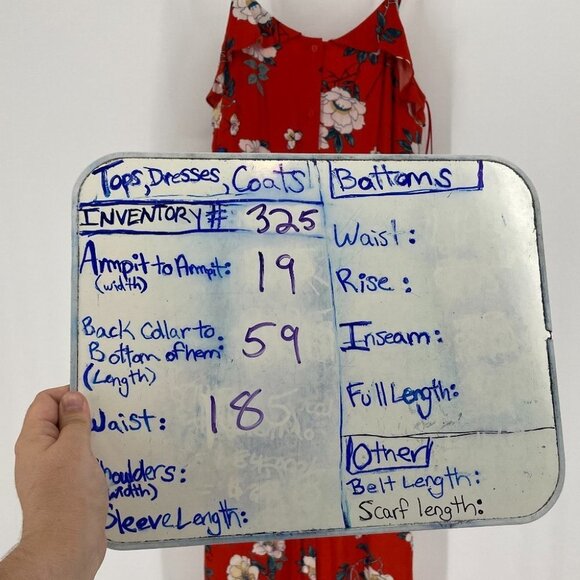 Tops, Dresses, Coats
INVENTORY# 325
Armpit to Armpit: 19
(width)
Back Collar to
Bottom of hem: 59
(Length)
Waist: 18
Shoulders:
(width)
Sleeve Length:
Bottoms
Waist:
Rise:
Inseam:
Full Length:
Other
Belt Length:
Scarf length: